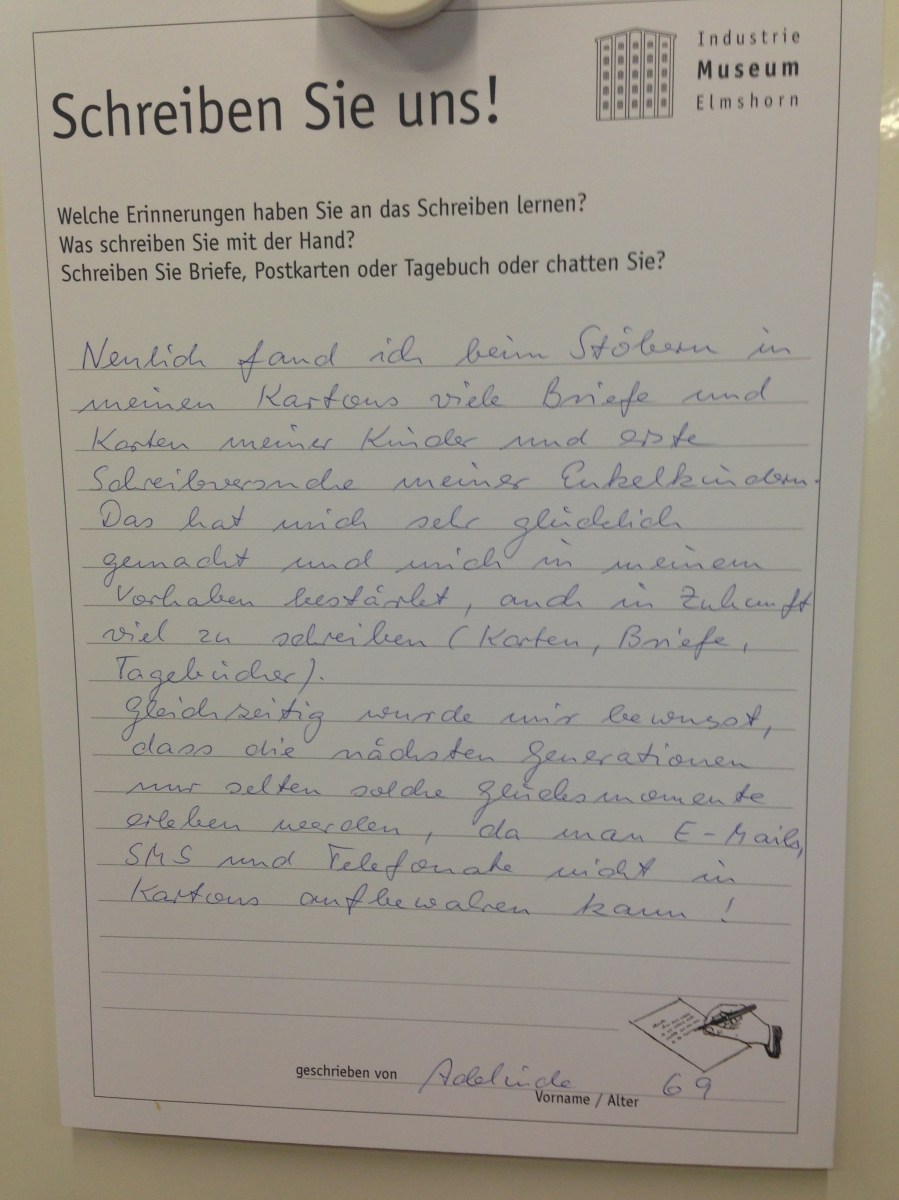 Schreiben Sie uns!
Industrie
Museum
Elmshorn
Welche Erinnerungen haben Sie an das Schreiben lernen?
Was schreiben Sie mit der Hand?
Schreiben Sie Briefe, Postkarten oder Tagebuch oder chatten Sie?
Neulich fand ich beim Stöbern in
meinen Kartons viele Briefe und
Karten meiner Kinder und erste
Schreibversuche meiner Enkelkindern.
Das hat mich sehr glücklich
gemacht und mich in meinem
Vorhaben bestärkt, auch in Zukunft
viel zu schreiben (Karten, Briefe,
Tagebücher).
Gleichzeitig wurde mir bewusst,
dass die nächsten Generationen
nur selten solche Glücksmomente
erleben werden, da man E-Mails,
SMS und Telefonate nicht in
Kartons aufbewahren kann!
geschrieben von Adelinde 69
Vorname / Alter